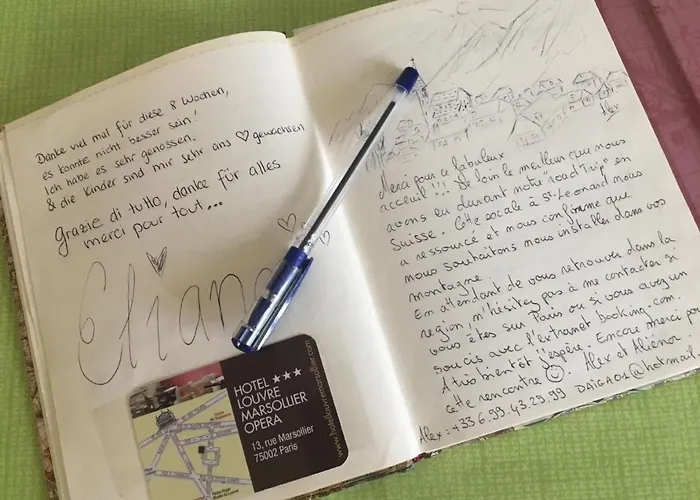 Danke viel mal für diese 8 Wochen,
es könnte nicht besser sein!
Ich habe es sehr genossen.
& die Kinder sind mir sehr ans ♡ gewachsen
grazie di tutto, danke für alles
merci pour tout...
HOTEL ★★★
LOUVRE
MARSOLLIER
OPERA
13, rue Marsollier
75002 Paris
www.hotellouvremarsollier.com
Alex
Merci pour ce fabuleux
acceuil !!! De loin le meilleur que nous
avons eu durant notre "road Trip" en
Suisse. Cette escale à St-Leonard nous
a ressourcé et nous confirme que
nous souhaitons nous installer dans vos
montagne.
En attendant de vous retrouver dans la
région, n'hésitez pas à me contacter si
vous êtes sur Paris ou si vous avez un
soucis avec l'extranet booking.com.
A très bientôt j'espère. Encore merci pour
cette rencontre ☺. Alex et Aliénor.
Alex = +33 6.99.43.29.99